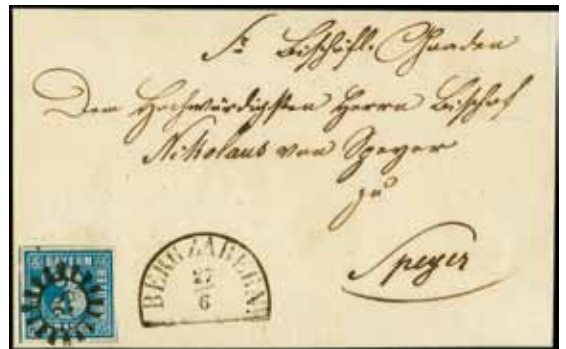 Sr. Bischöfl. Gnaden
Dem Hochwürdigsten Herrn Bischof
Nikolaus von Speyer
zu
Speyer
BERGZABERN
27
6